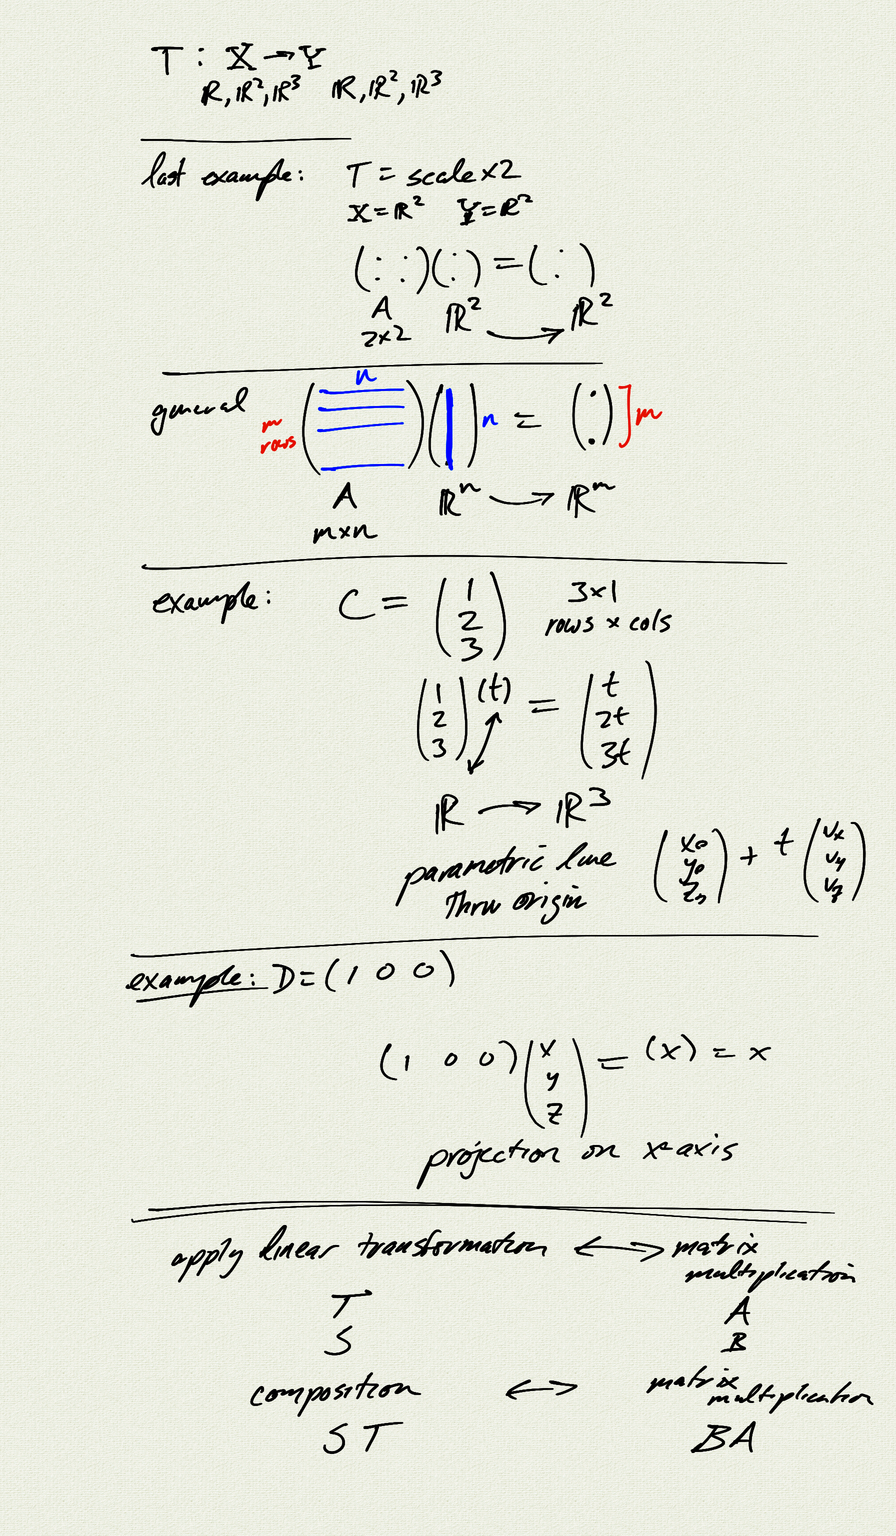 T : X → Y
ℝ, ℝ², ℝ³ ℝ, ℝ², ℝ³
last example: T = scale x2
X = ℝ² Y = ℝ²
(: :)(:) = (:)
A ℝ² → ℝ²
2x2
general m rows n n = m
A ℝⁿ → ℝᵐ
m x n
example: C = (1 2 3) 3x1
rows x cols
(1 2 3)(t) = (t 2t 3t)
ℝ → ℝ³
parametric line (x₀ y₀ z₀) + t (vx vy vz)
thru origin
example: D = (1 0 0)
(1 0 0)(x y z) = (x) = x
projection on x-axis
apply linear transformation ↔ matrix
multiplication
T A
S B
composition ↔ matrix
multiplication
ST BA